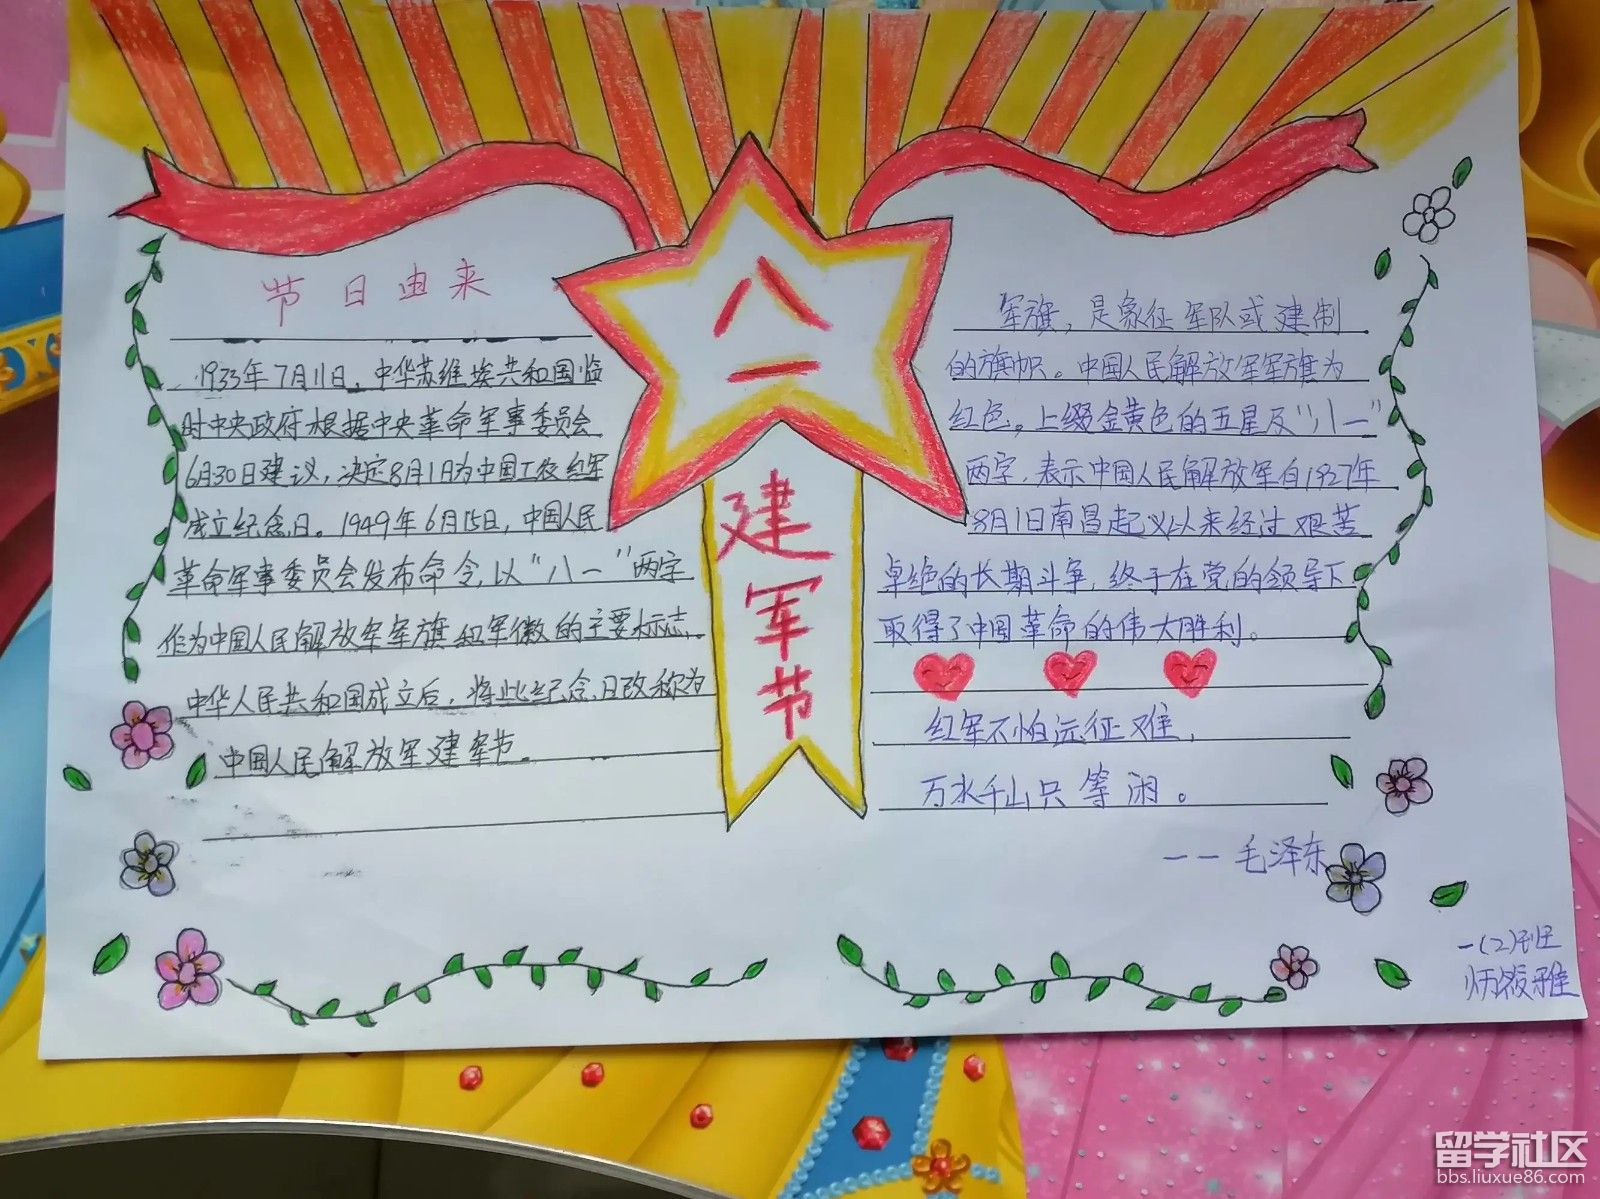 节日由来
1933年7月11日，中华苏维埃共和国临
时中央政府根据中央革命军事委员会
6月30日建议，决定8月1日为中国工农红军
成立纪念日。1949年6月15日，中国人民
革命军事委员会发布命令，以"八一"两字
作为中国人民解放军军旗红军徽的主要标志.
中华人民共和国成立后，将此纪念日改称为
中国人民解放军建军节。
八
一
建
军
节
军旗，是象征军队或建制
的旗帜。中国人民解放军军旗为
红色，上缀金黄色的五星及"八一"
两字，表示中国人民解放军自1927年
8月1日南昌起义以来经过艰苦
卓绝的长期斗争，终于在党的领导下
取得了中国革命的伟大胜利。
红军不怕远征难，
万水千山只等闲。
——毛泽东
一(2)班
雅
留学社区
bbs.liuxue86.com